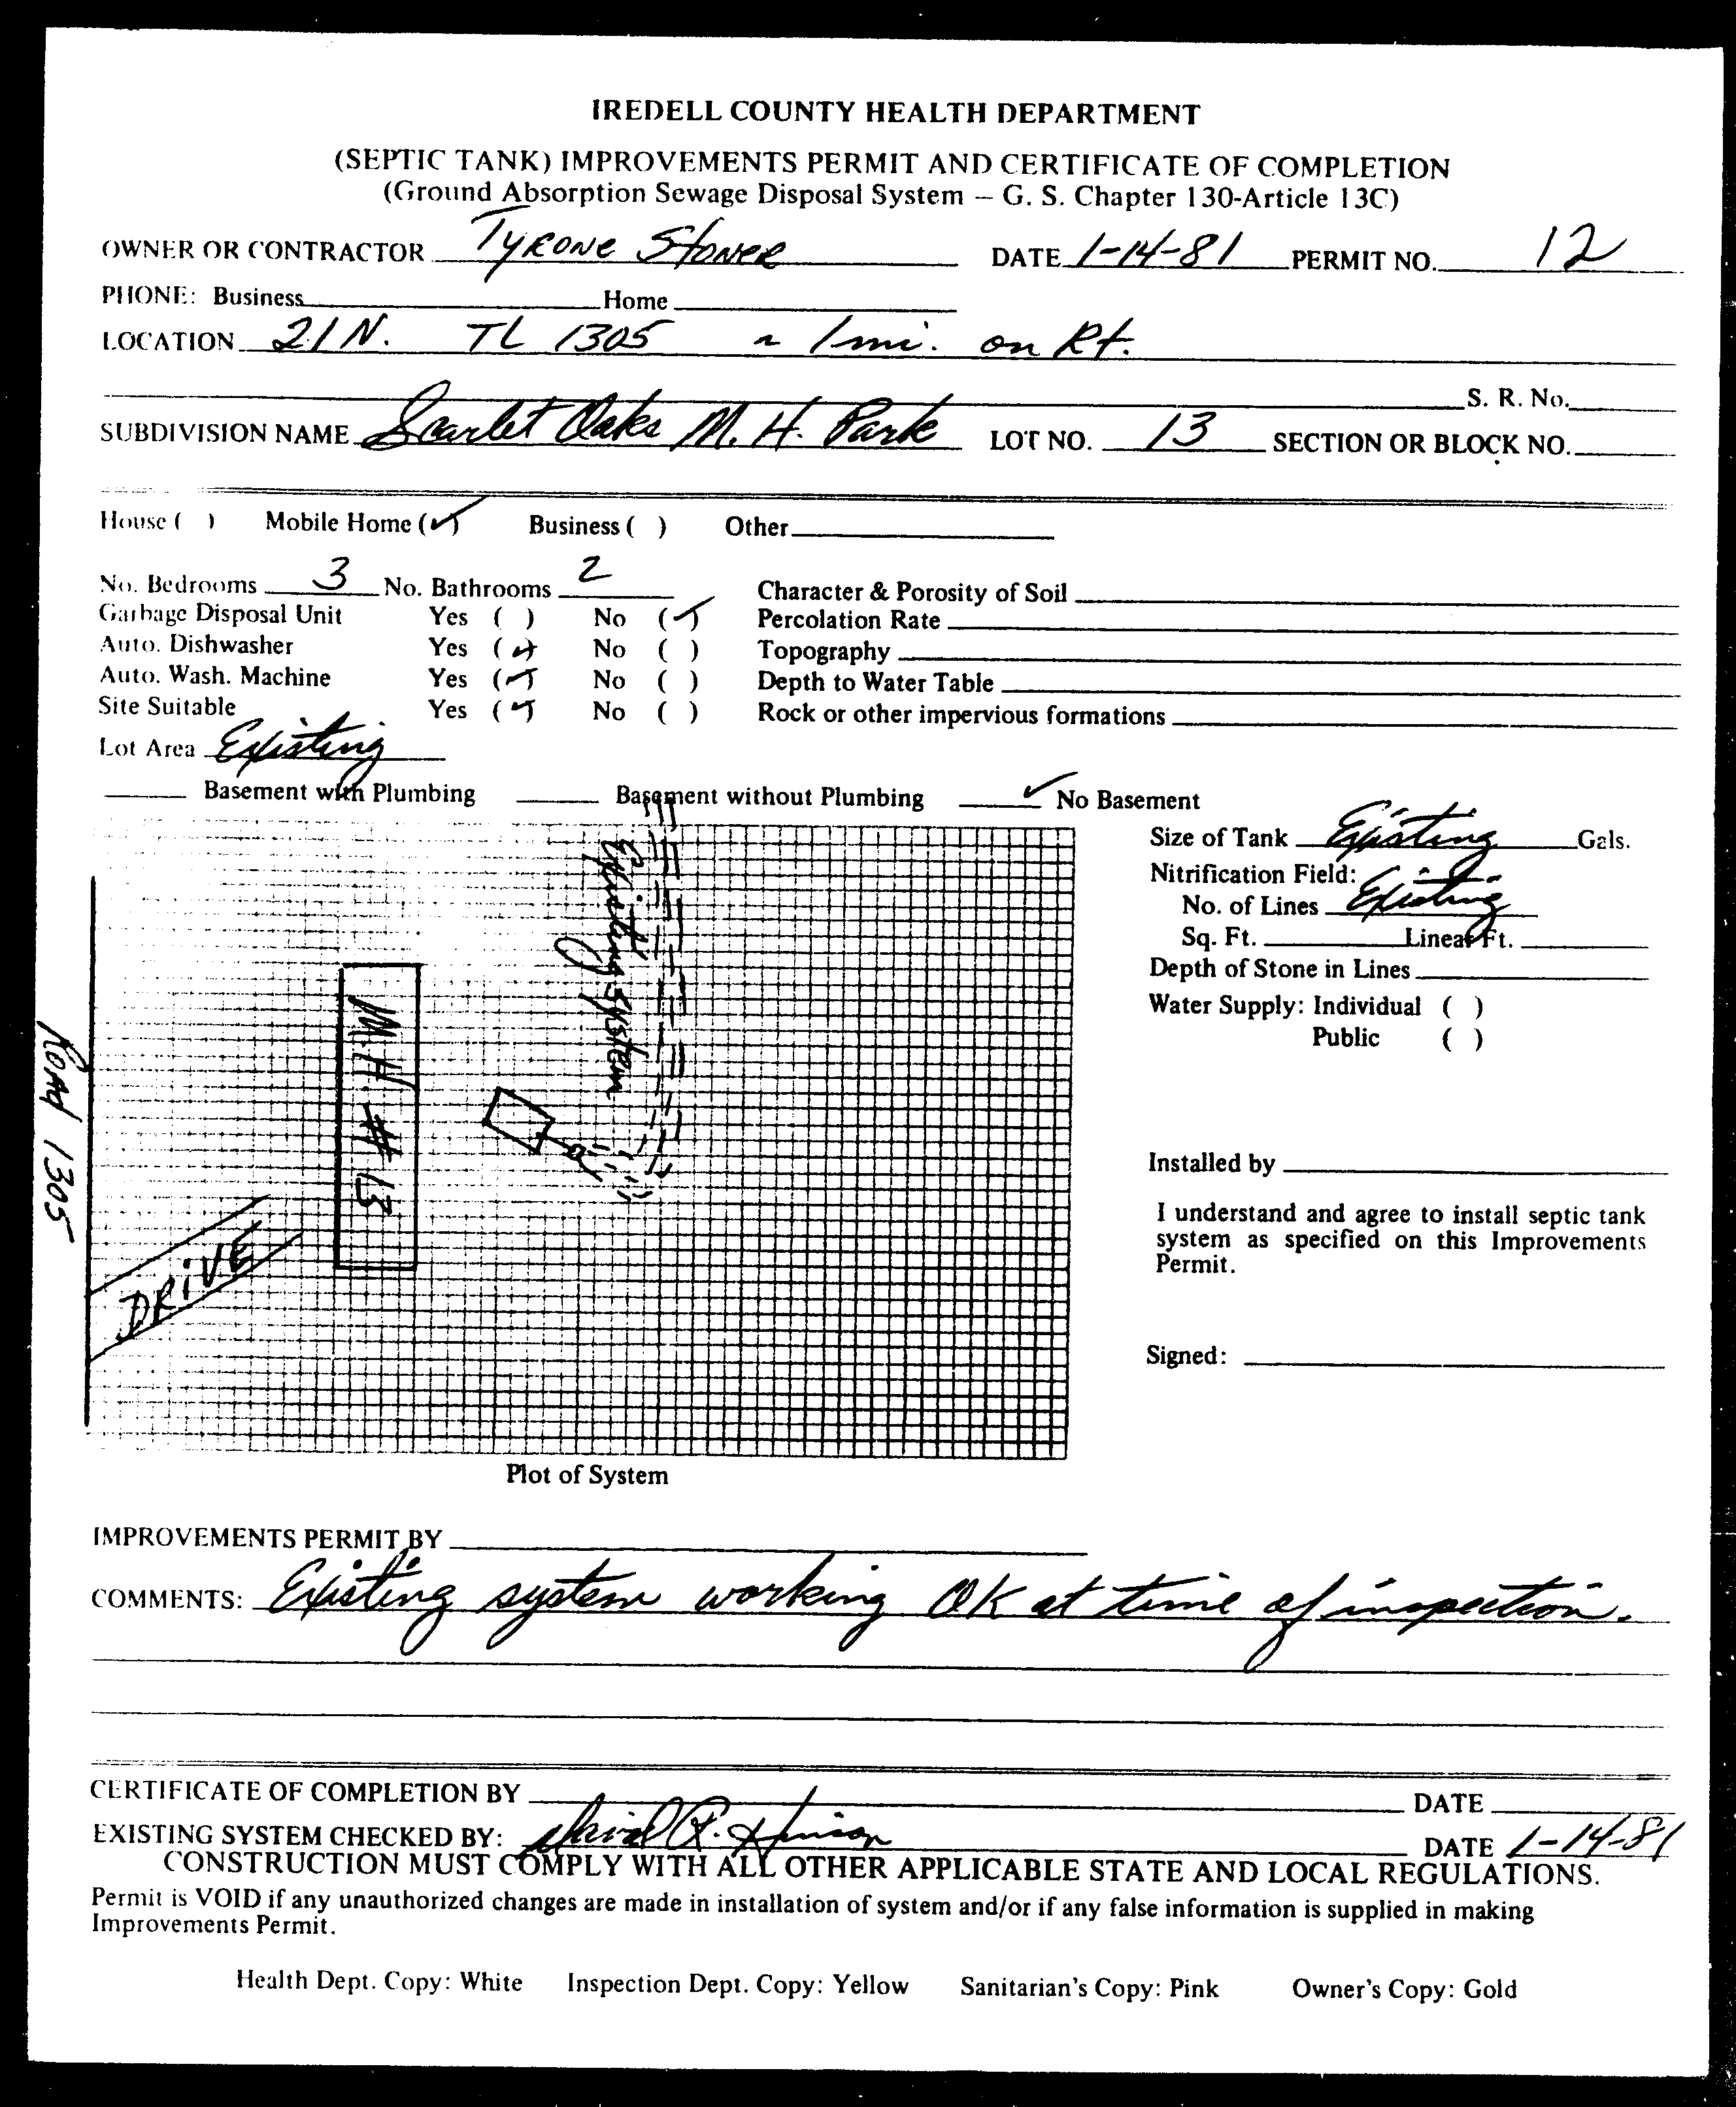 IREDELL COUNTY HEALTH DEPARTMENT
(SEPTIC TANK) IMPROVEMENTS PERMIT AND CERTIFICATE OF COMPLETION
(Ground Absorption Sewage Disposal System – G. S. Chapter 130-Article 13C)
OWNER OR CONTRACTOR Tyrone Stoner DATE 1-14-81 PERMIT NO. 12
PHONE: Business Home
LOCATION 21 N. TL 1305 ~ 1 mi. on Rt.
S. R. No.
SUBDIVISION NAME Scarlet Oaks M. H. Park LOT NO. 13 SECTION OR BLOCK NO.
House ( ) Mobile Home (✓) Business ( ) Other
No. Bedrooms 3 No. Bathrooms 2 Character & Porosity of Soil
Garbage Disposal Unit Yes ( ) No (✓) Percolation Rate
Auto. Dishwasher Yes (✓) No ( ) Topography
Auto. Wash. Machine Yes (✓) No ( ) Depth to Water Table
Site Suitable Yes (✓) No ( ) Rock or other impervious formations
Lot Area Existing
Basement with Plumbing Basement without Plumbing ✓ No Basement
Size of Tank Existing Gals.
Nitrification Field:
No. of Lines Existing
Sq. Ft. Linear Ft.
Depth of Stone in Lines
Water Supply: Individual ( )
Public ( )
Existing System
M.H. #13
Road 1305
DRIVE
Installed by
I understand and agree to install septic tank
system as specified on this Improvements
Permit.
Signed:
Plot of System
IMPROVEMENTS PERMIT BY
COMMENTS: Existing system working OK at time of inspection.
CERTIFICATE OF COMPLETION BY DATE
EXISTING SYSTEM CHECKED BY: David R. Hinson DATE 1-14-81
CONSTRUCTION MUST COMPLY WITH ALL OTHER APPLICABLE STATE AND LOCAL REGULATIONS.
Permit is VOID if any unauthorized changes are made in installation of system and/or if any false information is supplied in making
Improvements Permit.
Health Dept. Copy: White Inspection Dept. Copy: Yellow Sanitarian's Copy: Pink Owner's Copy: Gold